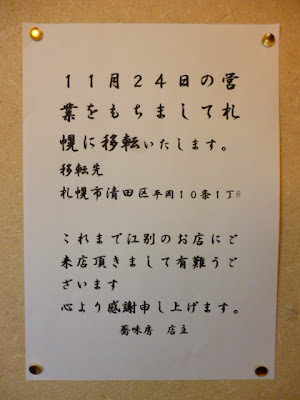 11月24日の営
業をもちまして札
幌に移転いたします。
移転先
札幌市清田区平岡10条1丁8
これまで江別のお店にご
来店頂きまして有難うご
ざいます
心より感謝申し上げます。
蕎味房 店主